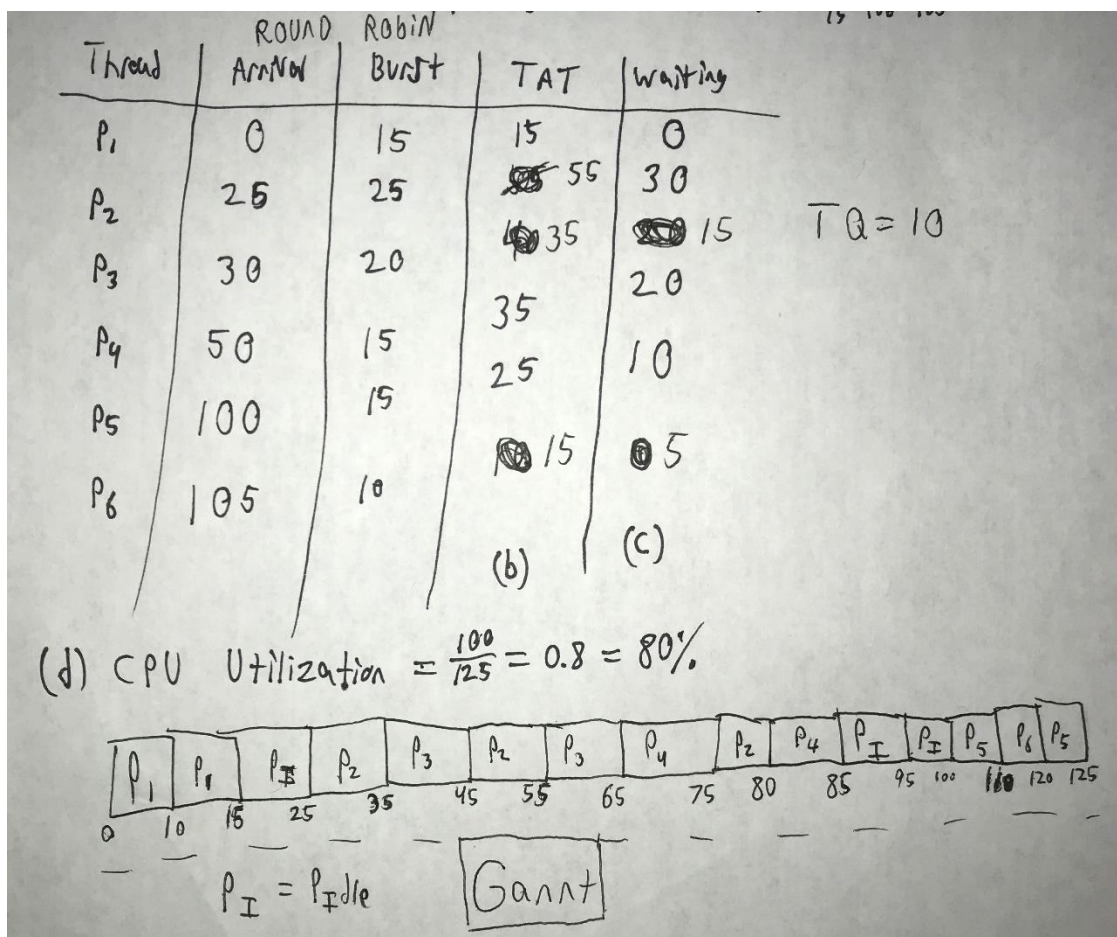 ROUND ROBIN
Thread Arrival Burst TAT Waiting
P1 0 15 15 0
P2 25 25 55 30
P3 30 20 35 15
TQ = 10
P4 50 15 35 20
P5 100 15 25 10
P6 105 10 15 5
(b) (c)
(d) CPU Utilization = 100/125 = 0.8 = 80%
P1 P1 PI P2 P3 P2 P3 P4 P2 P4 PI PI P5 P6 P5
0 10 15 25 35 45 55 65 75 80 85 95 100 110 120 125
PI = PIdle
Gannt